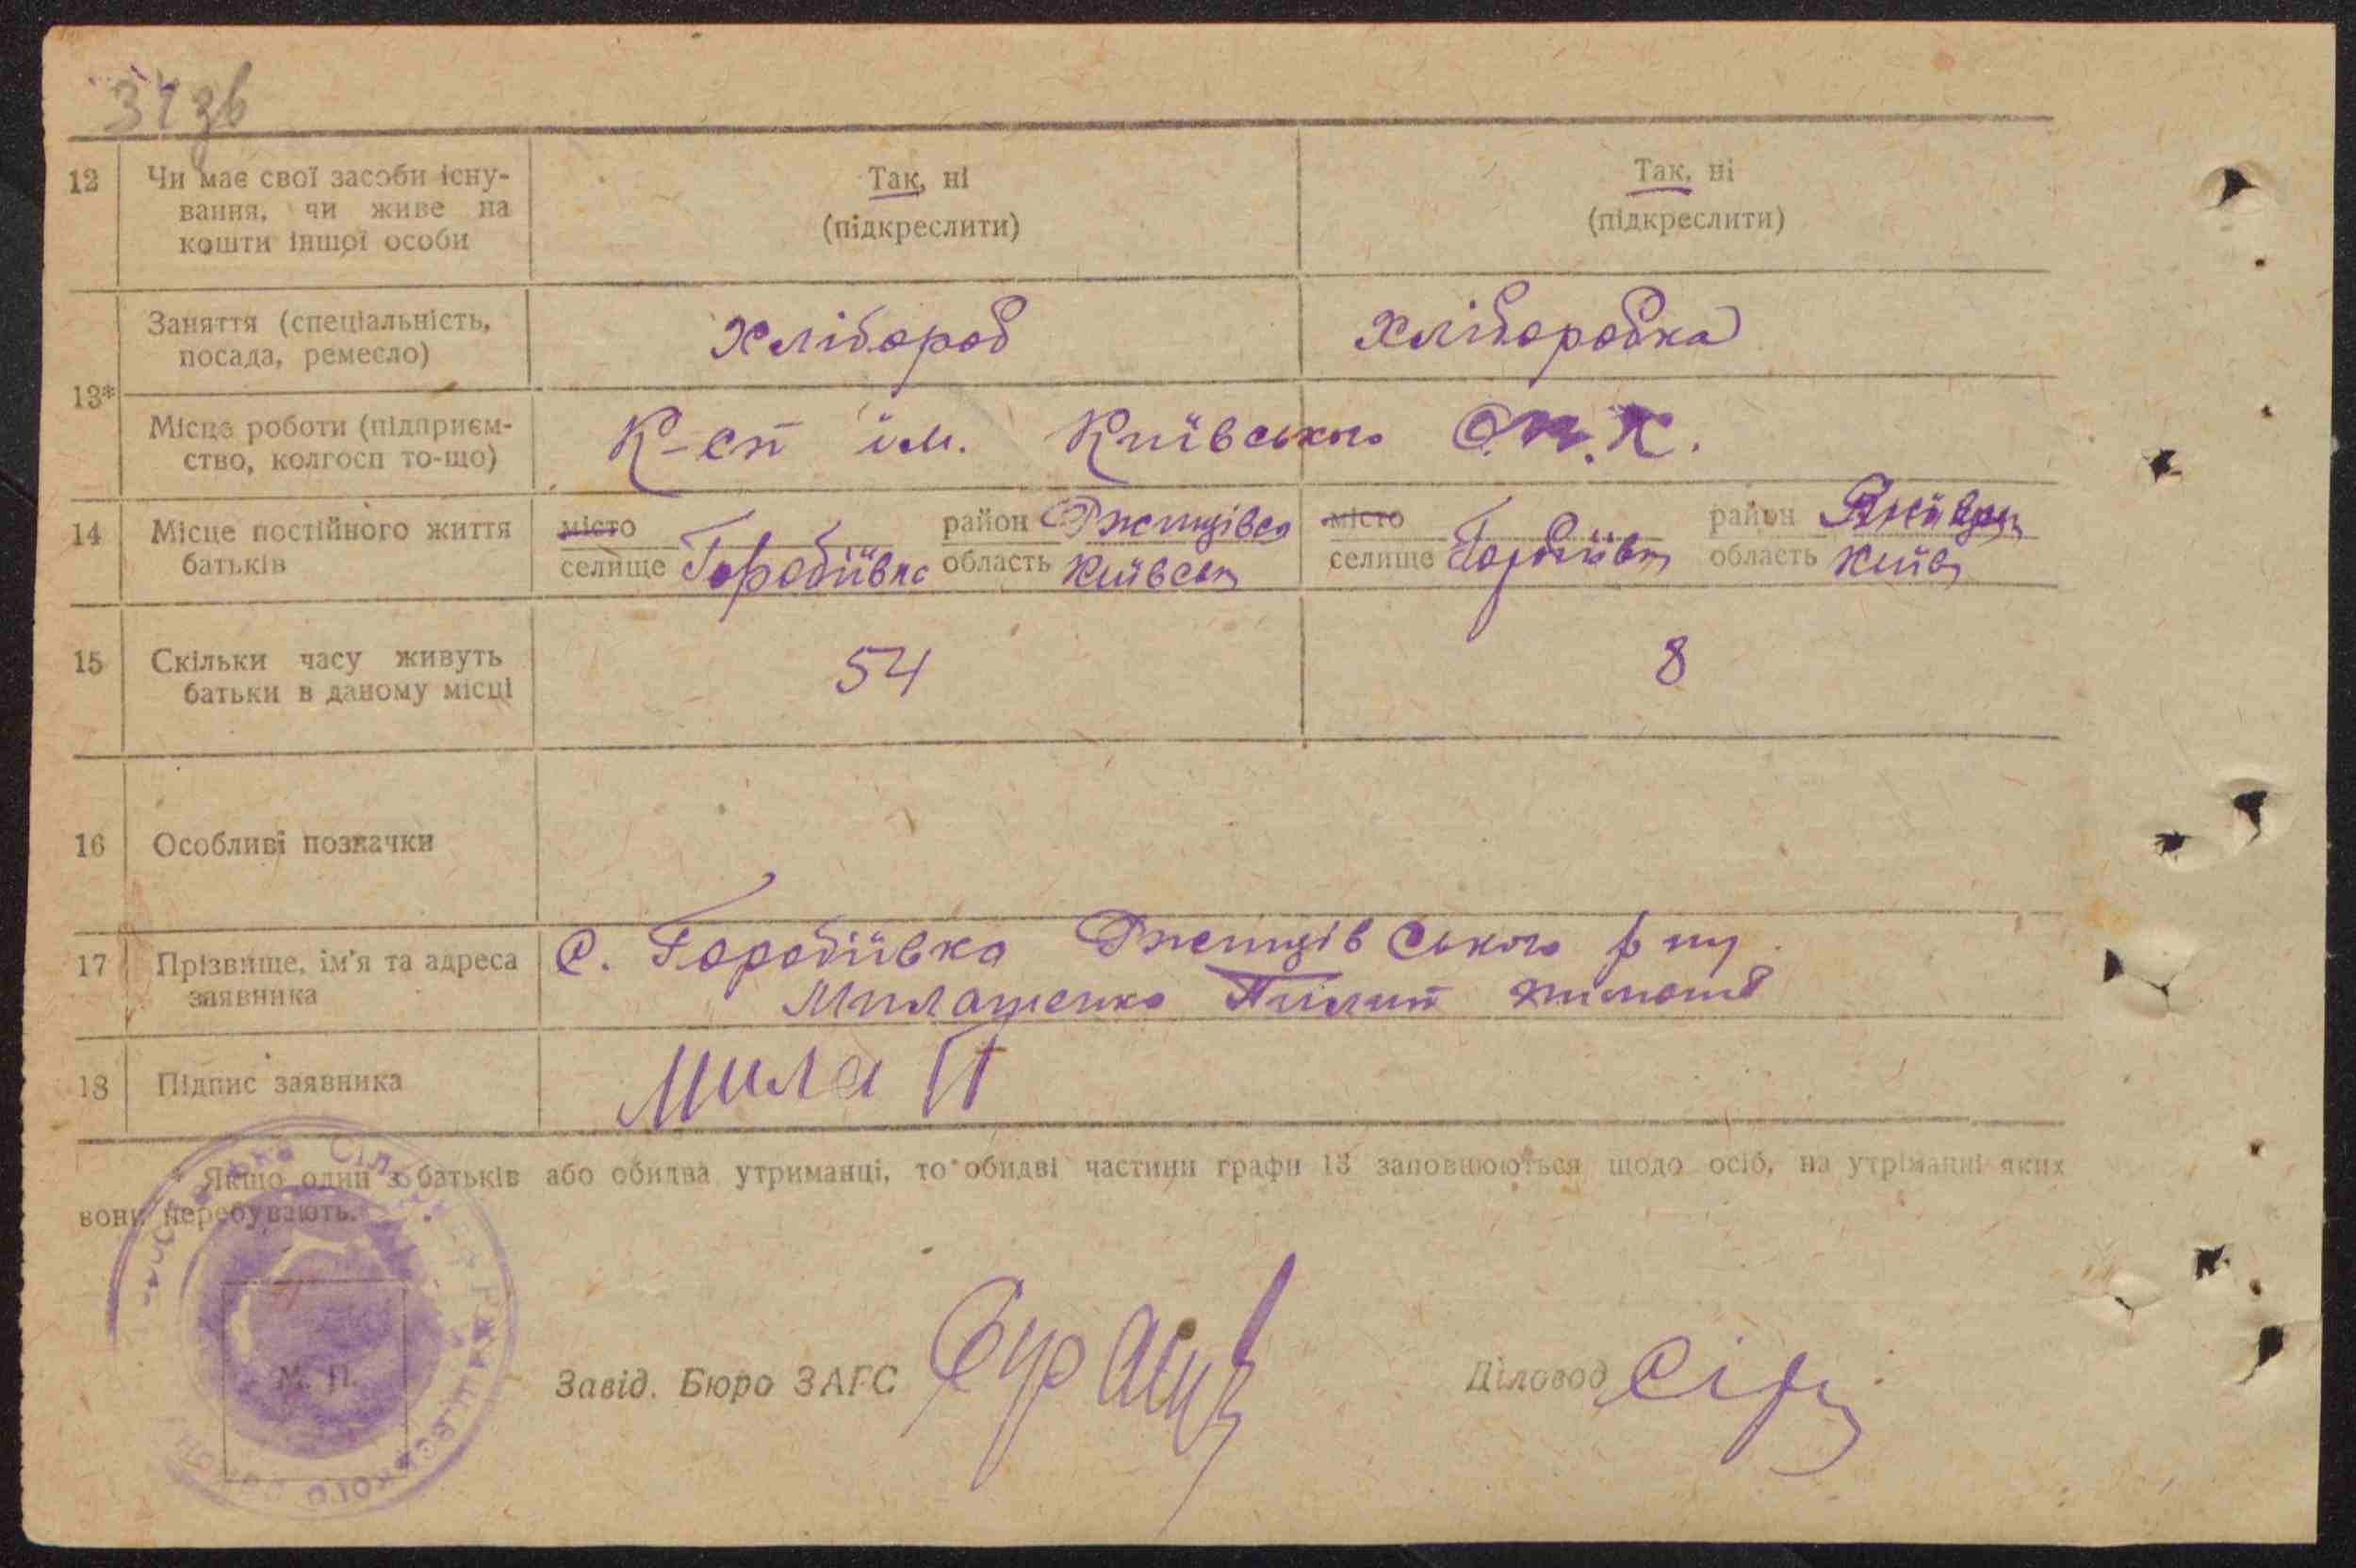 12 Чи має свої засоби існу-
вання, чи живе на
кошти іншої особи
Так, ні
(підкреслити)
Так, ні
(підкреслити)
13*
Заняття (спеціальність,
посада, ремесло)
Хлібороб
Хліборобка
Місце роботи (підприєм-
ство, колгосп то-що)
К-сп ім. Київського
14 Місце постійного життя
батьків
місто
селище Горобіївка
район
область Київськ
місто
селище
район
область Київ
15 Скільки часу живуть
батьки в даному місці
54
8
16 Особливі позначки
17 Прізвище, ім'я та адреса
заявника
с. Горобіївка Ржищівського р ну
Милашенко Пилип
18 Підпис заявника
Мила П
* Якщо один з батьків або обидва утриманці, то обидві частини графи 13 заповнюються щодо осіб, на утріманні яких
вони перебувають.
М. П.
Завід. Бюро ЗАГС
Діловод